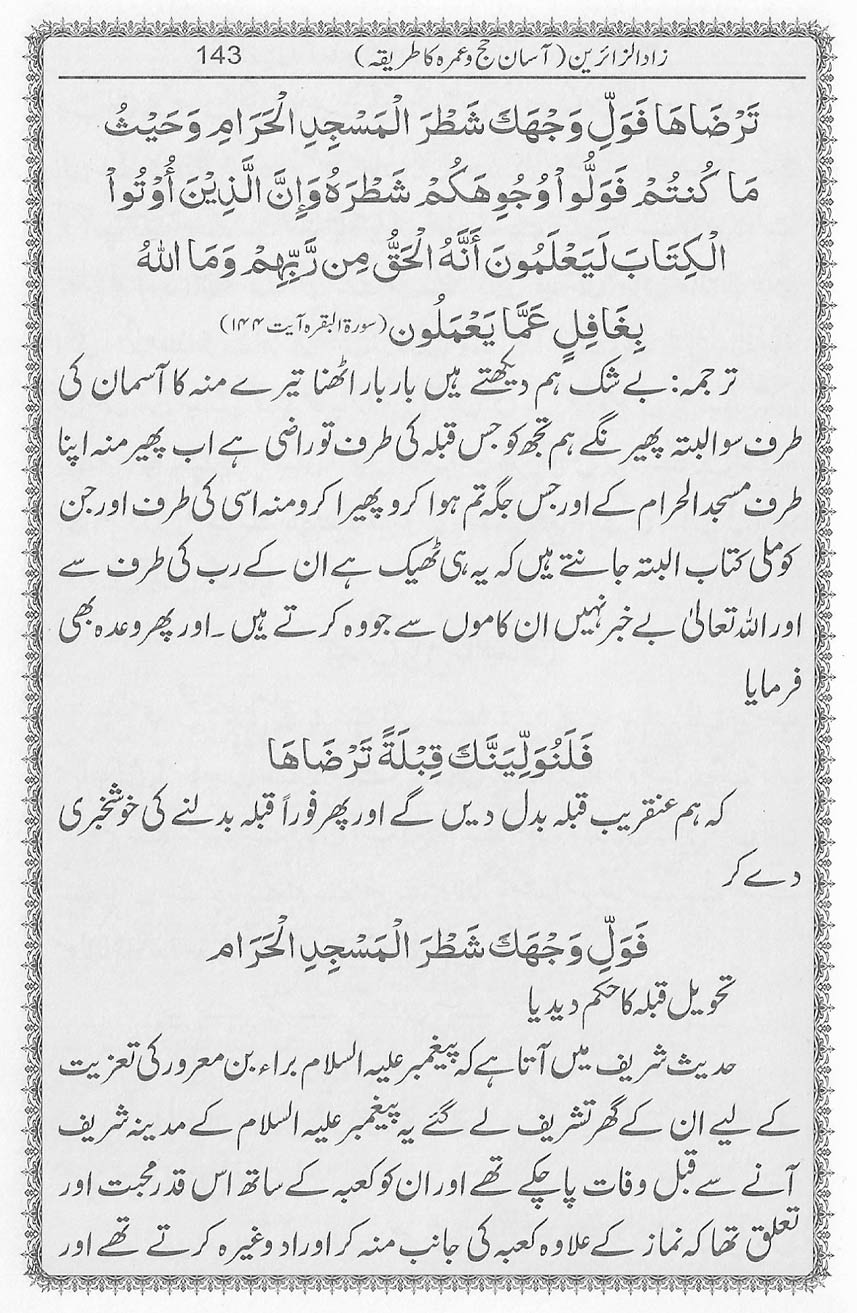 زاد الزائرین (آسان حج و عمرہ کا طریقہ) 143
تَرْضَاهَا فَوَلِّ وَجْهَكَ شَطْرَ الْمَسْجِدِ الْحَرَامِ وَحَيْثُ
مَا كُنتُمْ فَوَلُّواْ وُجُوِهَكُمْ شَطْرَهُ وَإِنَّ الَّذِيْنَ أُوْتُواْ
الْكِتَابَ لَيَعْلَمُونَ أَنَّهُ الْحَقُّ مِن رَّبِّهِمْ وَمَا اللهُ
بِغَافِلٍ عَمَّا يَعْمَلُون (سورۃ البقرہ آیت ۱۴۴)
ترجمہ: بے شک ہم دیکھتے ہیں بار بار اٹھنا تیرے منہ کا آسمان کی
طرف سو البتہ پھیرنگے ہم تجھ کو جس قبلہ کی طرف تو راضی ہے اب پھیر منہ اپنا
طرف مسجد الحرام کے اور جس جگہ تم ہوا کرو پھیرا کرو منہ اسی کی طرف اور جن
کو ملی کتاب البتہ جانتے ہیں کہ یہ ہی ٹھیک ہے ان کے رب کی طرف سے
اور اللہ تعالیٰ بے خبر نہیں ان کاموں سے جو وہ کرتے ہیں۔ اور پھر وعدہ بھی
فرمایا
فَلَنُوَلِّيَنَّكَ قِبْلَةً تَرْضَاهَا
کہ ہم عنقریب قبلہ بدل دیں گے اور پھر فوراً قبلہ بدلنے کی خوشخبری
دے کر
فَوَلِّ وَجْهَكَ شَطْرَ الْمَسْجِدِ الْحَرَام
تحویل قبلہ کا حکم دیدیا
حدیث شریف میں آتا ہے کہ پیغمبر علیہ السلام براء بن معرور کی تعزیت
کے لیے ان کے گھر تشریف لے گئے یہ پیغمبر علیہ السلام کے مدینہ شریف
آنے سے قبل وفات پا چکے تھے اور ان کو کعبہ کے ساتھ اس قدر محبت اور
تعلق تھا کہ نماز کے علاوہ کعبہ کی جانب منہ کر اوراد وغیرہ کرتے تھے اور